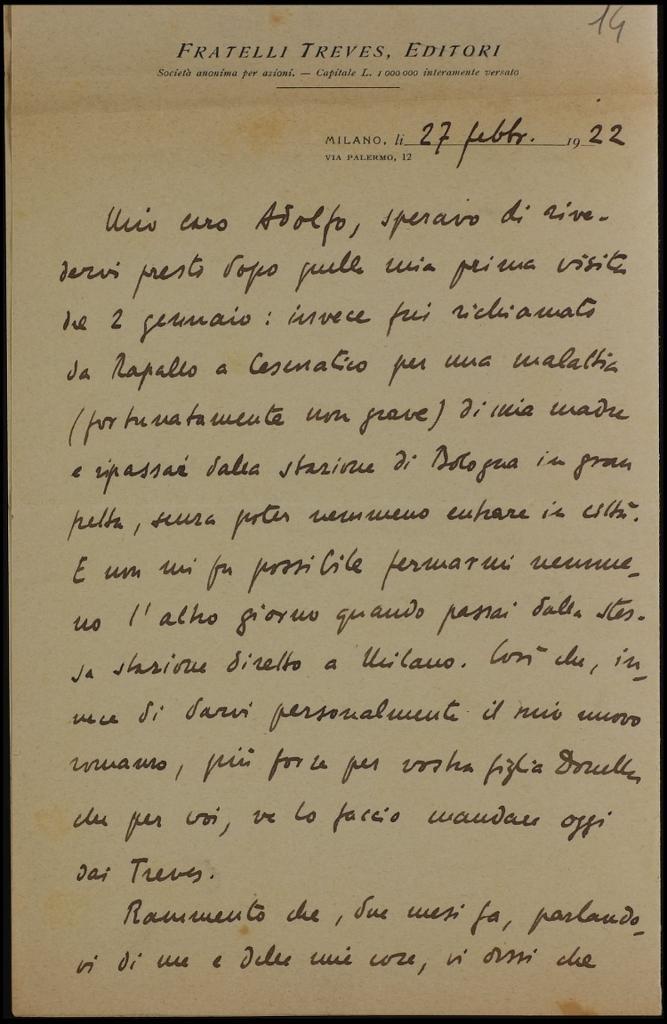 14
FRATELLI TREVES, EDITORI
Società anonima per azioni. — Capitale L. 1 000 000 interamente versato
MILANO, li 27 febbr. 1922
VIA PALERMO, 12
Mio caro Adolfo, speravo di rive-
dervi presto dopo quella mia prima visita
del 2 gennaio: invece fui richiamato
da Rapallo a Cesenatico per una malattia
(fortunatamente non grave) di mia madre
e ripassai dalla stazione di Bologna in gran
fretta, senza poter nemmeno entrare in città.
E non mi fu possibile fermarmi nemme-
no l'altro giorno quando passai dalla stes-
sa stazione diretto a Milano. Così che, in-
vece di darvi personalmente il mio nuovo
romanzo, più forse per vostra figlia Donella
che per voi, ve lo faccio mandare oggi
dai Treves.
Rammento che, due mesi fa, parlando-
vi di me e delle mie cose, vi dissi che